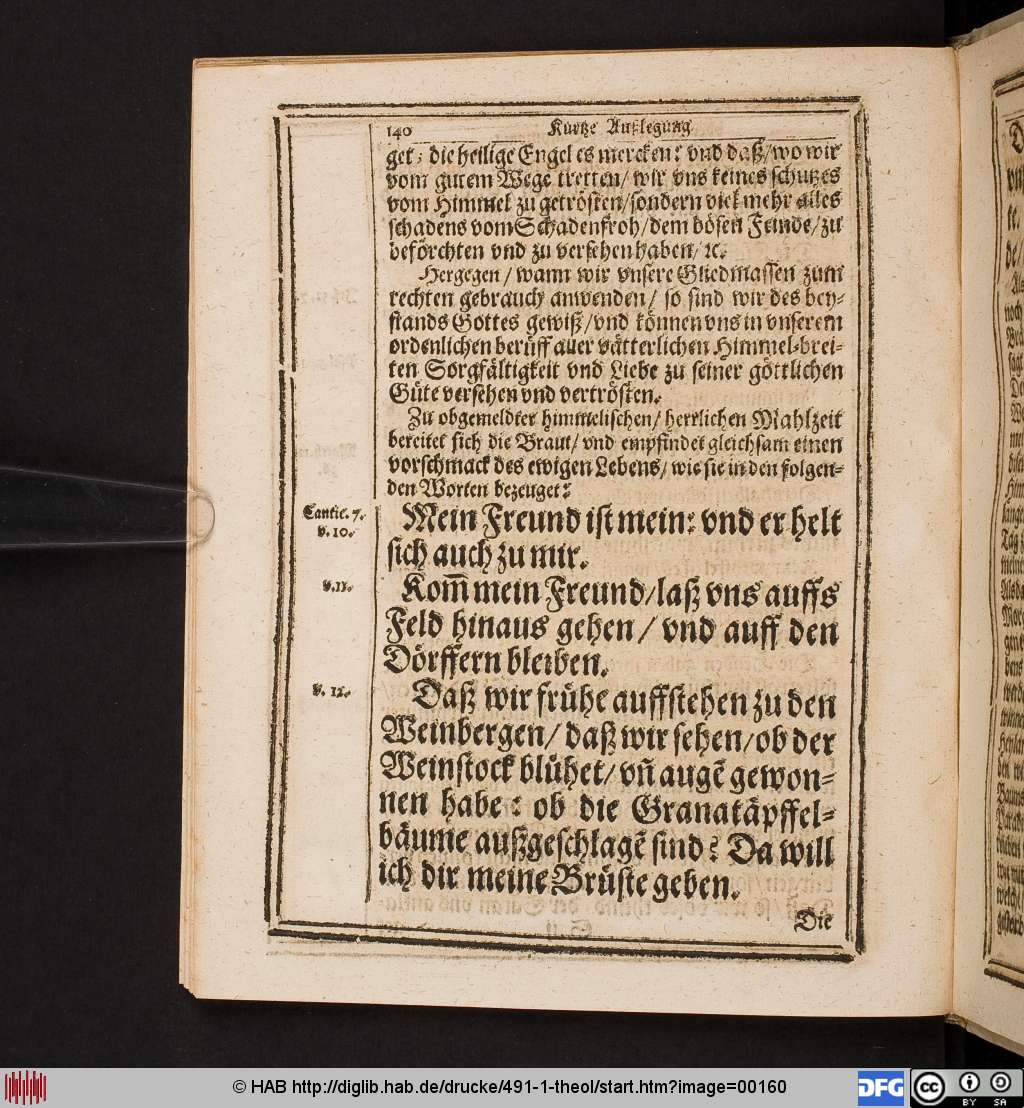 140 Kurtze Außlegung
get; die heilige Engel es mercken: vnd daß/wo wir
vom gutem Wege tretten/ wir vns keines schutzes
vom Himmel zu getrösten/sondern viel mehr alles
schadens vom Schadenfroh/dem bösen Feinde/zu
beförchten vnd zu versehen haben/ ꝛc.
Hergegen/ wann wir vnsere Gliedmassen zum
rechten gebrauch anwenden/ so sind wir des bey-
stands Gottes gewiß/vnd können vns in vnserem
ordenlichen berüff aller vätterlichen Himmel-brei-
ten Sorgfältigkeit vnd Liebe zu seiner göttlichen
Güte versehen vnd vertrösten.
Zu obgemeldter himmelischen/ herrlichen Mahlzeit
bereitet sich die Braut/ vnd empfindet gleichsam einen
vorschmack des ewigen Lebens/ wie sie in den folgen-
den Worten bezeuget:
Cantic. 7.
v. 10.
Mein Freund ist mein: vnd er helt
sich auch zu mir.
v. 11.
Kom̃ mein Freund/laß vns auffs
Feld hinaus gehen/ vnd auff den
Dörffern bleiben.
v. 12.
Daß wir frühe auffstehen zu den
Weinbergen/ daß wir sehen/ob der
Weinstock blühet/ vñ augẽ gewon-
nen habe: ob die Granatäpffel-
bäume außgeschlagẽ sind? Da will
ich dir meine Brüste geben.
Die
© HAB http://diglib.hab.de/drucke/491-1-theol/start.htm?image=00160
DFG
cc BY SA